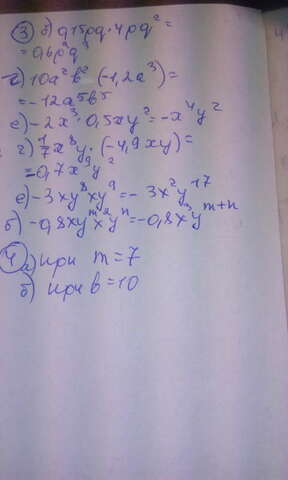 ③ б) 0,15pq · 4pq² =
= 0,6p²q³
2) 10a²b² · (-1,2a³) =
= -12a⁵b⁵
c) -2x³ · 0,5xy² = -x⁴y²
г) 1/7 x⁸y · (-4,9xy) =
= 0,7x⁹y²
e) -3xy⁸xy⁹ = -3x²y¹⁷
б) -0,8xyᵐxyⁿ = -0,8x²yᵐ⁺ⁿ
④ а) при m = 7
б) при b = 10